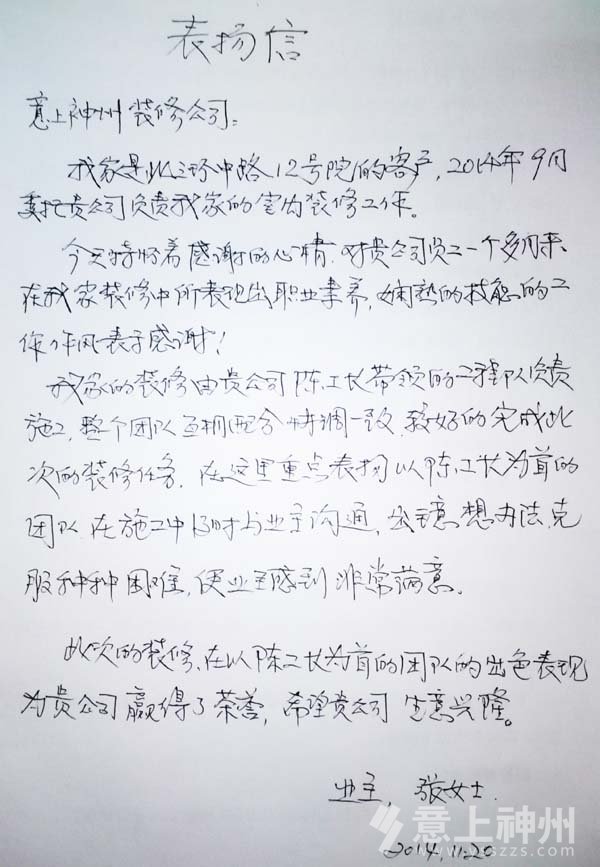 表扬信
意上神州装修公司:
我家是北三环中路12号院的客户,2014年9月
委托贵公司负责我家的室内装修工作。
今天特怀着感谢的心情,对贵公司员工一个多月来
在我家装修中所表现出职业素养,娴熟的技能的工
作作风表示感谢!
我家的装修由贵公司陈工长带领的工程队负责
施工,整个团队互相配合协调一致,较好的完成此
次的装修任务,在这里重点表扬以陈工长为首的
团队在施工中随时与业主沟通,出主意想办法,克
服种种困难,使业主感到非常满意。
此次的装修,在以陈工长为首的团队的出色表现
为贵公司赢得了荣誉,希望贵公司生意兴隆。
业主,张女士.
2014.11.20
意上神州
www.yszzs.com